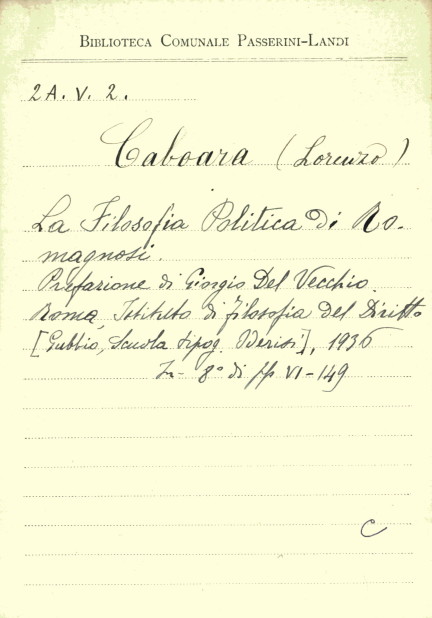 BIBLIOTECA COMUNALE PASSERINI-LANDI
2A. V. 2.
Caboara (Lorenzo)
La Filosofia Politica di Ro-
magnosi.
Prefazione di Giorgio Del Vecchio.
Roma, Istituto di filosofia del Diritto
[Gubbio, Scuola tipog. Oderisi], 1936
In- 8° di pp VI-149
C